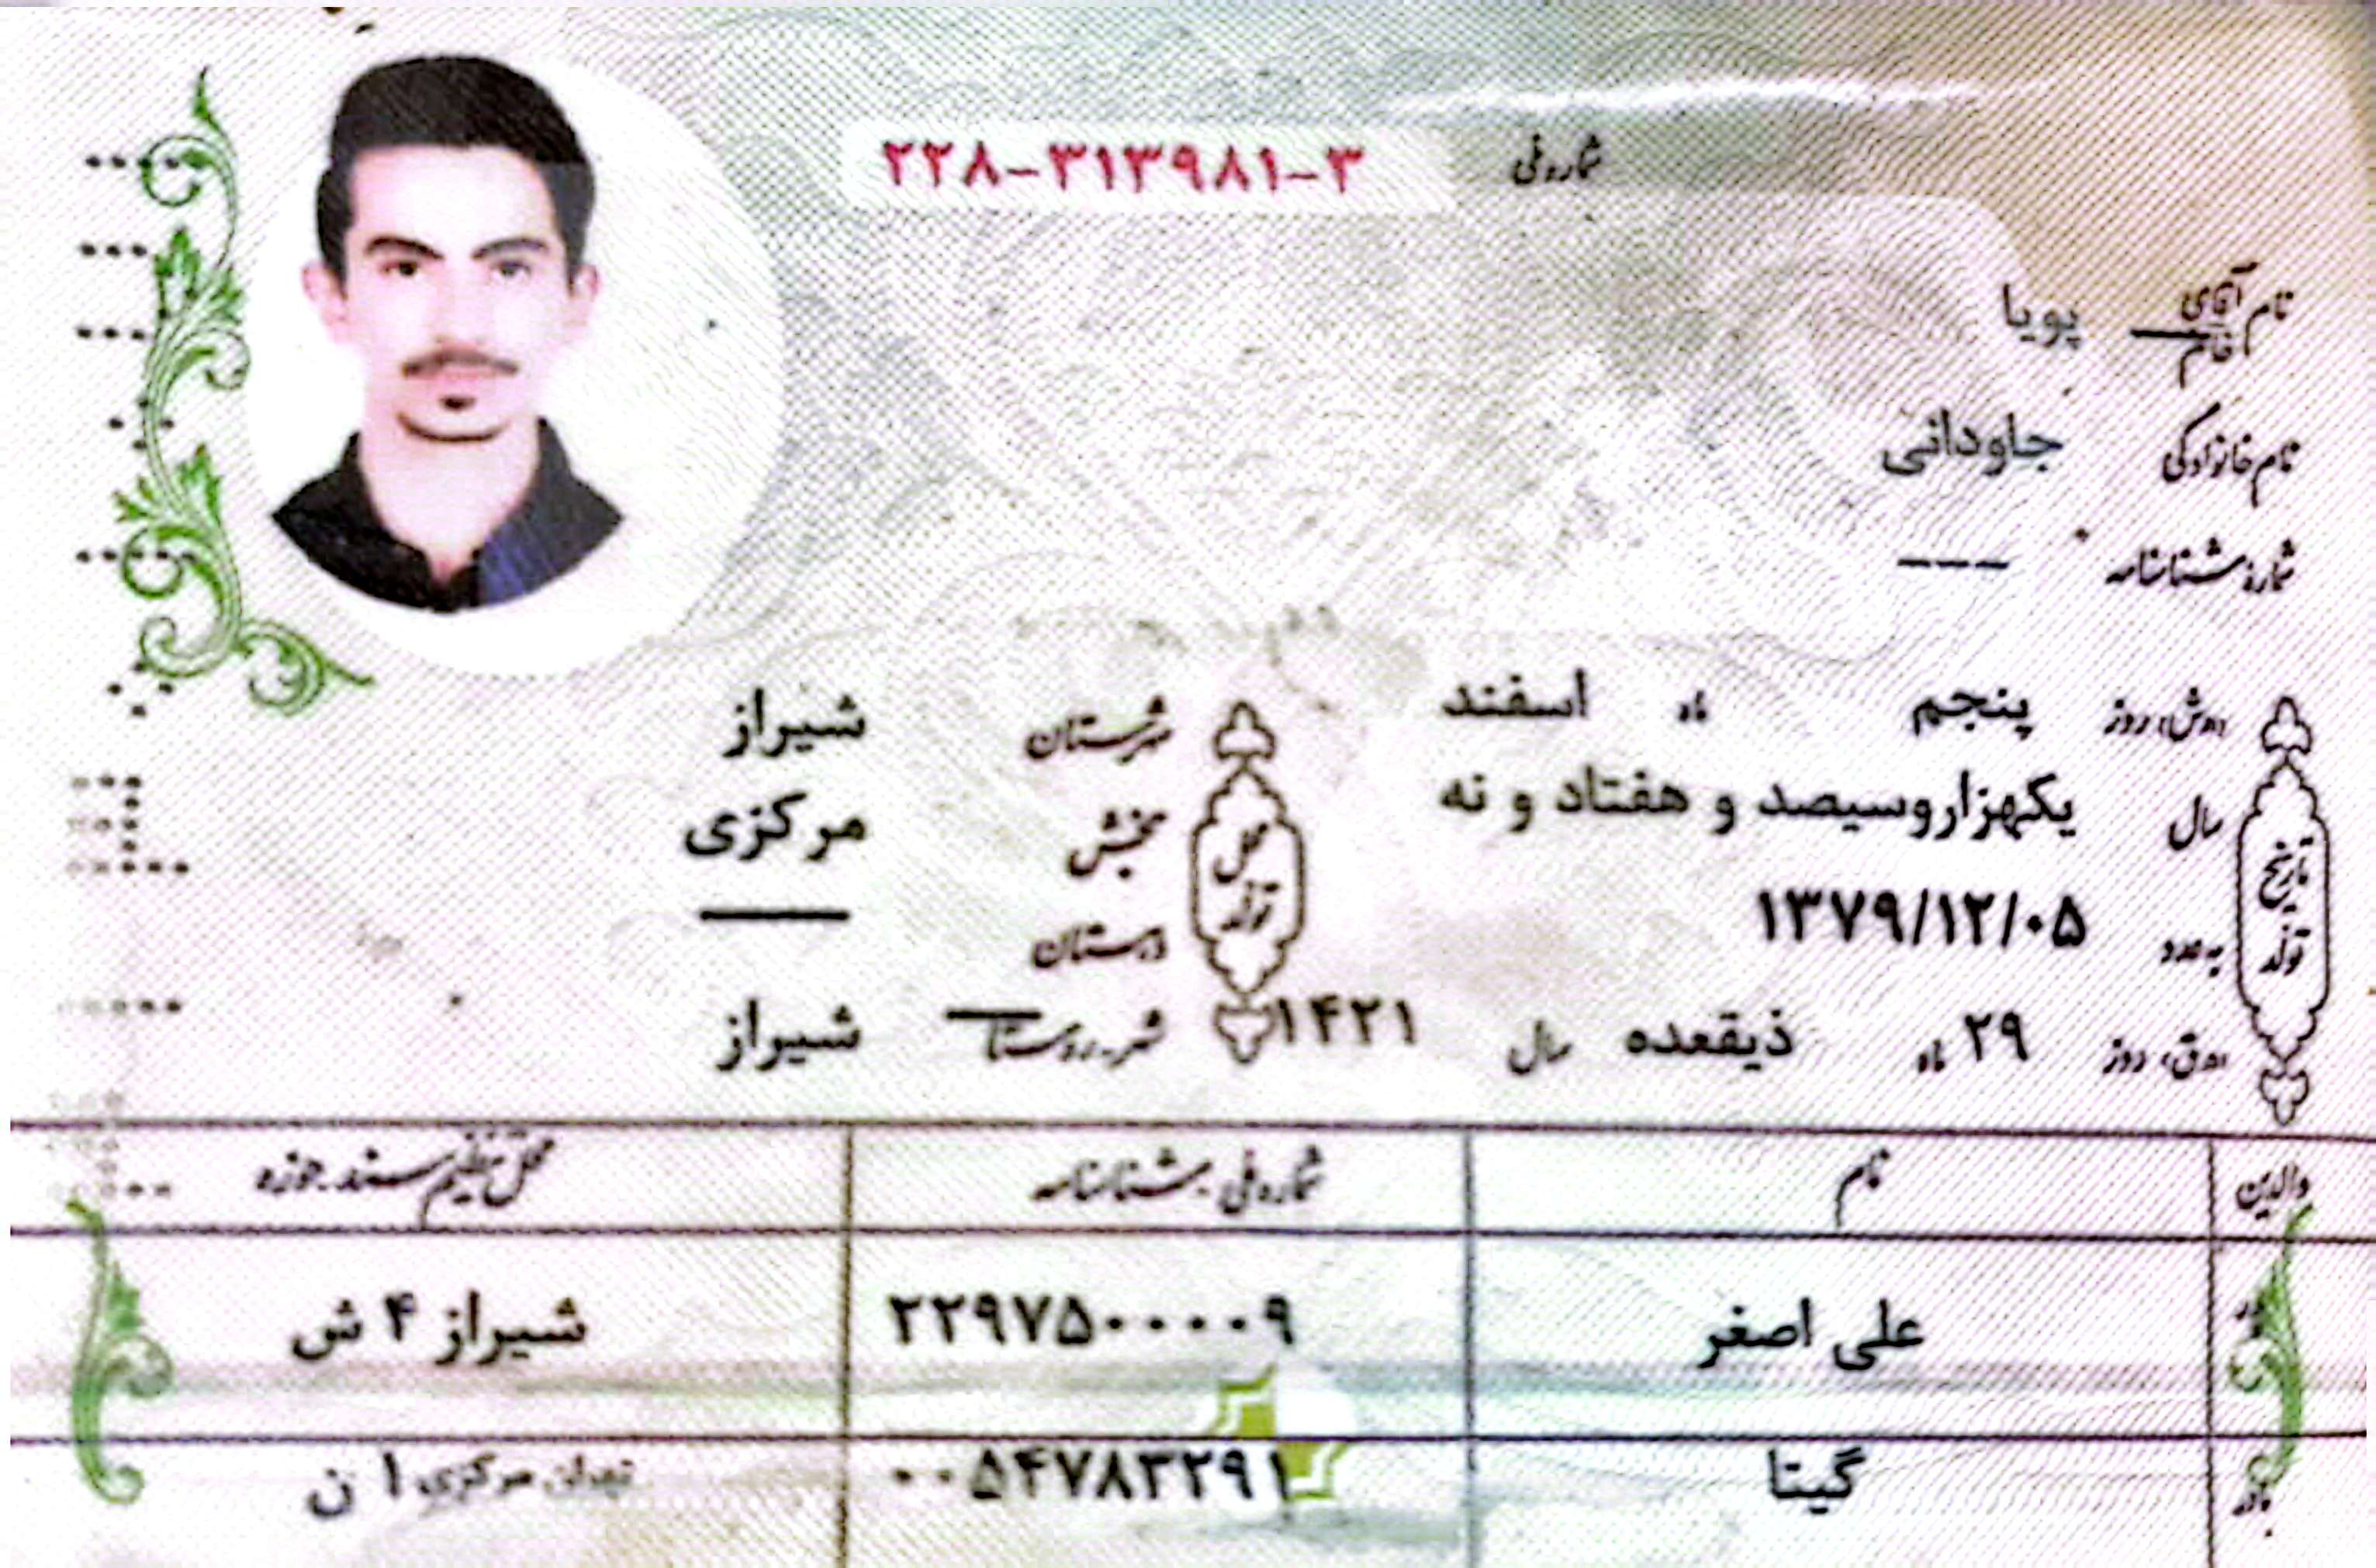 شماره ملی ۲۲۸-۳۱۳۹۸۱-۳
نام آقای خانم پویا
نام خانوادگی جاودانی
شماره شناسنامه ---
تاریخ تولد
(ه‍.ش) روز پنجم ماه اسفند
سال یکهزاروسیصد و هفتاد و نه
به عدد ۱۳۷۹/۱۲/۰۵
(ه‍.ق) روز ۲۹ ماه ذیقعده سال ۱۴۲۱
محل تولد
شهرستان شیراز
بخش مرکزی
دهستان ——
شهر-روستا شیراز
والدین نام شماره ملی - شناسنامه محل تنظیم سند - حوزه
علی اصغر ۲۲۹۷۵۰۰۰۰۹ شیراز ۴ ش
مادر گیتا ۰۰۵۴۷۸۳۲۹۱ تهران مرکزی ۱ ن